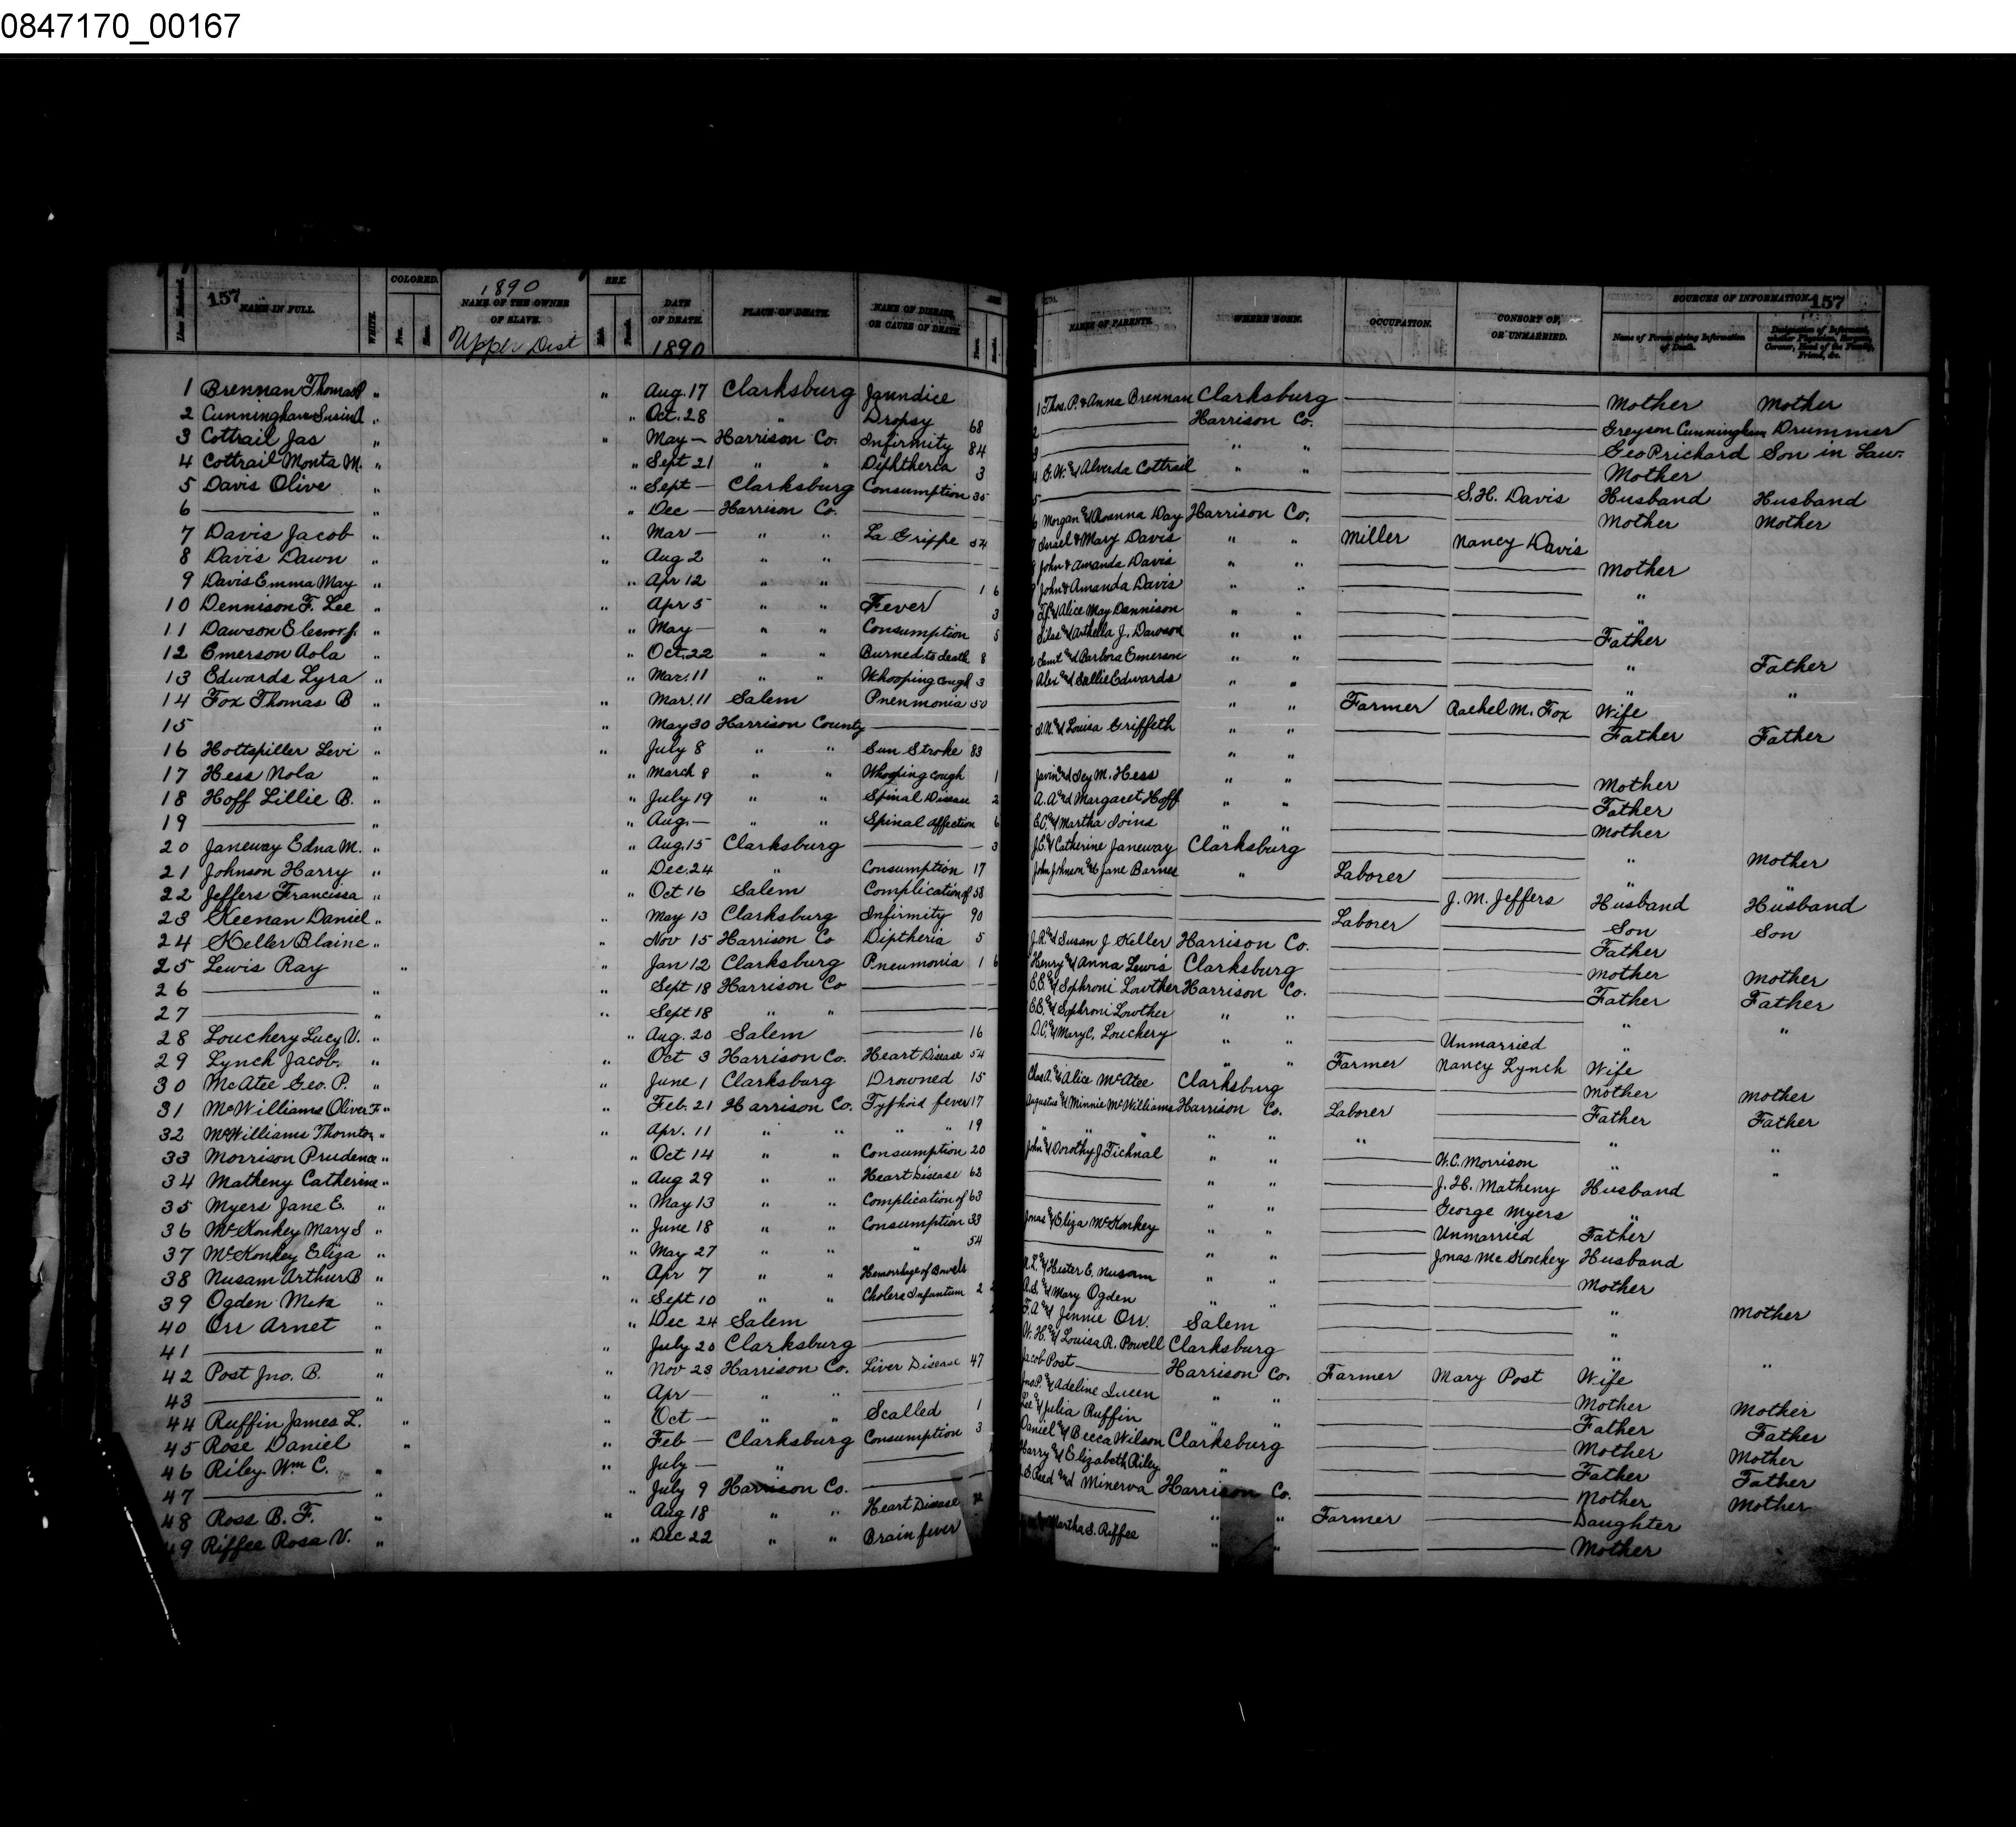 0847170_00167
157 NAME IN FULL. WHITE. COLORED. Free. Slave. 1890 NAME OF THE OWNER OF SLAVE. Upper Dist SEX. Male. Female. DATE OF DEATH. 1890 PLACE OF DEATH. NAME OF DISEASE, OR CAUSE OF DEATH. Years. NAMES OF PARENTS. WHERE BORN. OCCUPATION. CONSORT OF, OR UNMARRIED. SOURCES OF INFORMATION. 157
Name of Person giving Information of Death. Designation of Informant, whether Physician, Surgeon, Coroner, Head of the Family, Friend, &c.
1 Brennan Thomas P " " Aug. 17 Clarksburg Jaundice 1 Thos. P. & Anna Brennan Clarksburg Mother Mother
2 Cunningham " " Oct. 28 " Dropsy 68 Harrison Co. Greyson Cunningham Drummer
3 Cottrail Jas " " May — Harrison Co. Infirmity 84 " " Geo Prichard Son in Law.
4 Cottrail Monta M. " " Sept 21 " " Diphtheria 3 & Alverda Cottrail " " Mother
5 Davis Olive " " Sept — Clarksburg Consumption 35 S. H. Davis Husband Husband
6 — " " Dec — Harrison Co. — Morgan & Roanna Day Harrison Co. Mother Mother
7 Davis Jacob " " Mar — " " La Grippe 54 Israel & Mary Davis " " Miller Nancy Davis
8 Davis Dawn " " Aug 2 " " — John & Amanda Davis " " Mother
9 Davis Emma May " " Apr 12 " " — 1 6 John & Amanda Davis " " "
10 Dennison F. Lee " " Apr 5 " " Fever 3 & Alice May Dennison " " "
11 Dawson " " May — " " Consumption 5 Silas & Arthella J. Dawson " " Father
12 Emerson Aola " " Oct. 22 " " Burned to death 8 & Barbora Emerson " " " Father
13 Edwards Lyra " " Mar. 11 " " Whooping cough 3 Alex and Sallie Edwards " " " "
14 Fox Thomas B " " Mar. 11 Salem Pnenmonia 50 " " Farmer Rachel M. Fox Wife
15 " " May 30 Harrison County — & Louisa Griffeth Father Father
16 Hottspiller Levi " " July 8 " " Sun Stroke 83 — " "
17 Hess Nola " " March 8 " " Whooping cough 1 M. Hess " " Mother
18 Hoff Lillie B. " " July 19 " " Spinal Disease 2 A. A. and Margaret Hoff " " Father
19 — " " Aug. — " " Spinal Affection 6 E. C. & Martha Goins " " Mother
20 Janeway Edna M. " " Aug. 15 Clarksburg — 3 J. E. & Catherine Janeway Clarksburg " Mother
21 Johnson Harry " " Dec. 24 " Consumption 17 John Johnson & Jane Barnes " Laborer " "
22 Jeffers Francissa " " Oct 16 Salem Complication of 58 — J. M. Jeffers Husband Husband
23 Keenan Daniel " " May 13 Clarksburg Infirmity 90 — Laborer Son Son
24 Keller Blaine " " Nov 15 Harrison Co Diptheria 5 J. R. and Susan J Keller Harrison Co. Father
25 Lewis Ray " " Jan 12 Clarksburg Pneumonia 1 6 Henry & Anna Lewis Clarksburg Mother Mother
26 — " " Sept 18 Harrison Co — E. E. & Sophroni Lowther Harrison Co. Father Father
27 — " " Sept 18 " " — E. E. & Sophroni Lowther " " " "
28 Louchery Lucy V. " " Aug. 20 Salem — 16 D. C. & Mary C. Louchery " " Unmarried "
29 Lynch Jacob. " " Oct 3 Harrison Co. Heart Disease 54 — " " Farmer Nancy Lynch Wife
30 McAtee Geo. P. " " June 1 Clarksburg Drowned 15 Chas A. & Alice McAtee Clarksburg Mother Mother
31 McWilliams Oliver F " " Feb. 21 Harrison Co. Typhoid fever 17 Augustus & Minnie McWilliams Harrison Co. Laborer Father Father
32 McWilliams Thornton " " Apr. 11 " " " " 19 " " " " " " " "
33 Morrison Prudence " " Oct 14 " " Consumption 20 John & Dorothy J. Tichnal " " W. C. Morrison " "
34 Matheny Catherine " " Aug 29 " " Heart Disease 62 — " " J. H. Matheny Husband
35 Myers Jane E. " " May 13 " " Complication of 63 — " " George Myers "
36 McKonkey Mary S " " June 18 " " Consumption 33 Jonas & Eliza McKonkey " " Unmarried Father
37 McKonkey Eliza " " May 27 " " " 54 — " " Jonas McKonkey Husband
38 Nusam Arthur B " " Apr 7 " " Hemorrhage of Bowels & Hester E. Nusam " " Mother
39 Ogden " " Sept 10 " " Cholera Infantum 2 & Mary Ogden " " " Mother
40 Orr Arnet " " Dec 24 Salem — F. A. & Jennie Orr. Salem "
41 — " " July 20 Clarksburg — W. H. & Louisa R. Powell Clarksburg " "
42 Post Jno. B. " " Nov 23 Harrison Co. Liver Disease 47 Jacob Post — Harrison Co. Farmer Mary Post Wife
43 — " " Apr — " " — Jno. P. & Adeline Queen " " Mother Mother
44 Ruffin James L. " " Oct — " " Scalled 1 Lee & Julia Ruffin " " Father Father
45 Rose Daniel " " Feb — Clarksburg Consumption 3 Daniel & Becca Wilson Clarksburg Mother Mother
46 Riley Wm C. " " July — " — Harry & Elizabeth Riley " Father Father
47 — " " July 9 Harrison Co. — Reed and Minerva Harrison Co. Mother Mother
48 Ross B. F. " " Aug 18 " " Heart Disease — " " Farmer Daughter
49 Riffee Rosa V. " " Dec 22 " " Brain fever Martha S. Riffee " " Mother